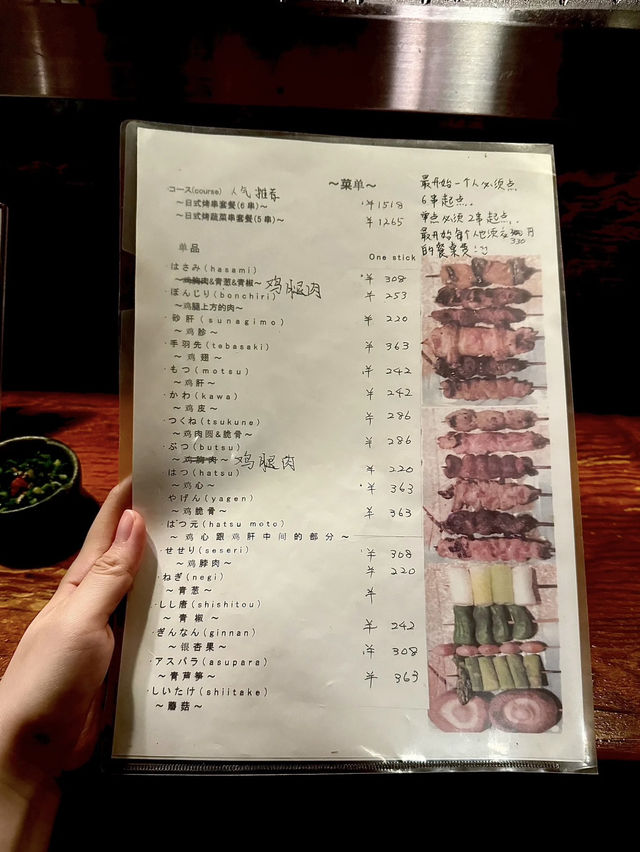 ～菜单～
コース(course) 人气 推荐
～日式烤串套餐(6串)～ ¥1518
～日式烤蔬菜串套餐(5串)～ ¥1265
最开始一个人必须点
6串起点..
单点必须2串起点..
最开始每个人也须
330
的餐桌费
单品 One stick
はさみ(hasami) ¥308
～鸡胸肉&青葱&青椒～ 鸡腿肉
ぼんじり(bonchiri) ¥253
～鸡腿上方的肉～
砂肝(sunagimo) ¥220
～鸡胗～
手羽先(tebasaki) ¥363
～鸡翅～
もつ(motsu) ¥242
～鸡肝～
かわ(kawa) ¥242
～鸡皮～
つくね(tsukune) ¥286
～鸡肉圆&脆骨～
ぶつ(butsu) ¥286
～鸡胸肉～ 鸡腿肉
はつ(hatsu) ¥220
～鸡心～
やげん(yagen) ¥363
～鸡脆骨～
はつ元(hatsu moto) ¥363
～鸡心跟鸡肝中间的部分～
せせり(seseri) ¥308
～鸡脖肉～
ねぎ(negi) ¥220
～青葱～
しし唐(shishitou) ¥
～青椒～
ぎんなん(ginnan) ¥242
～银杏果～
アスパラ(asupara) ¥308
～青芦笋～
しいたけ(shiitake) ¥363
～蘑菇～